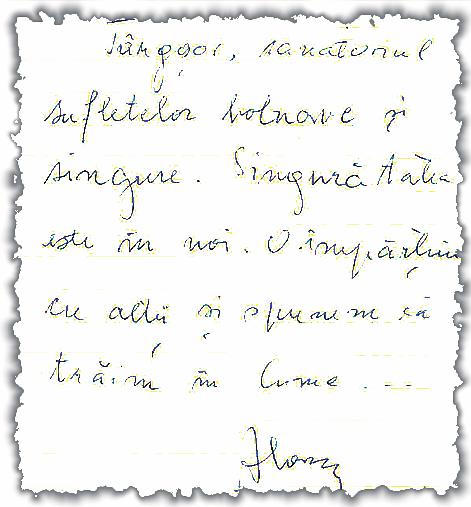 Târgșor, sanatoriul
sufletelor bolnave și
singure. Singurătatea
este în noi. O împărțim
cu alții și spunem că
trăim în lume...